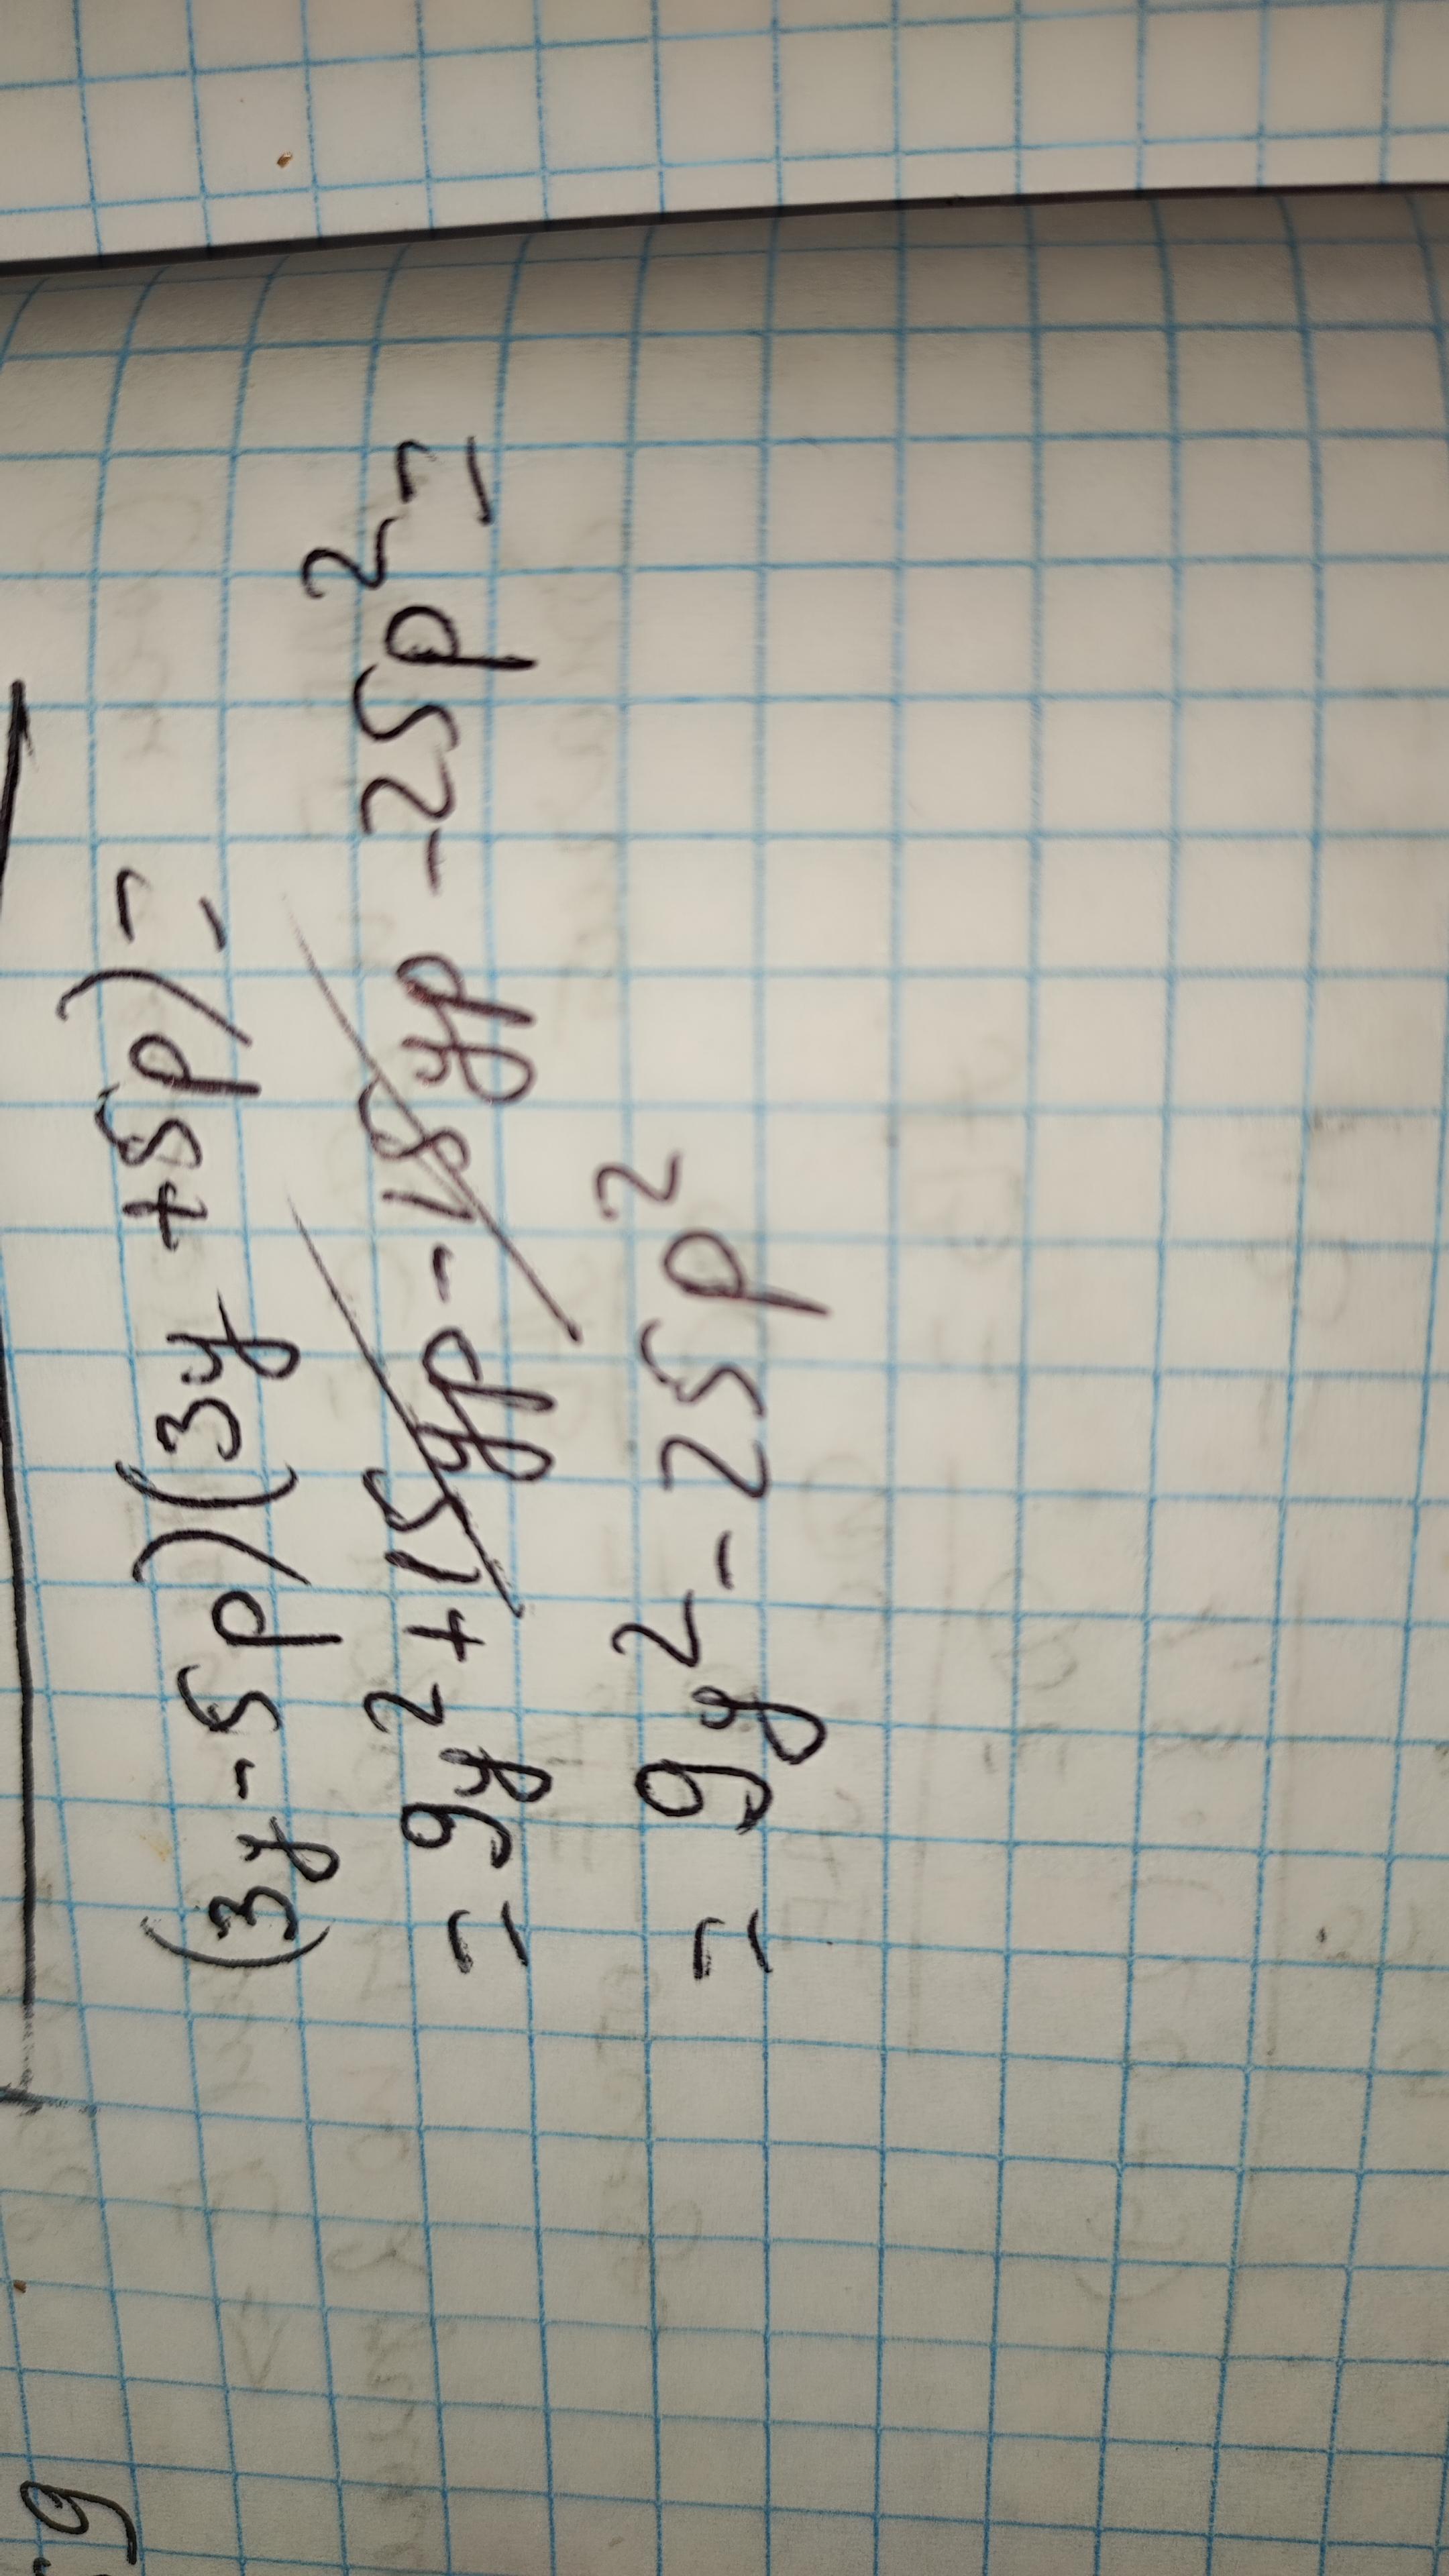 (3y-5p)(3y+5p)=
=9y²+15yp-15yp-25p²=
=9y²-25p²